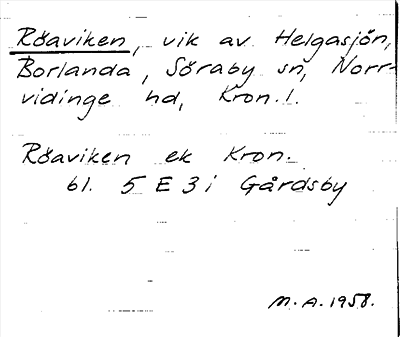 Röaviken, vik av Helgasjön,
Borlanda, Söraby sn, Norr-
vidinge hd, Kron. l.
Röaviken ek Kron.
bl. 5 E 3 i Gårdsby
M. A. 1958.